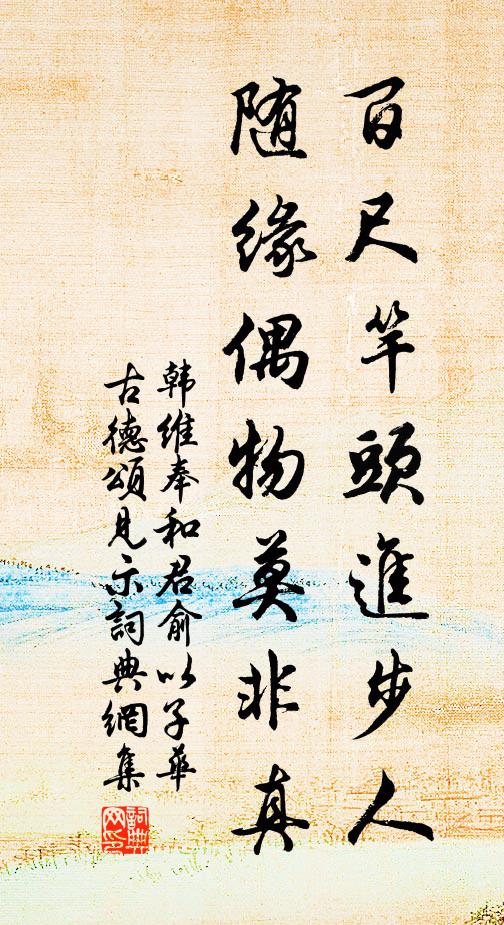 百尺竿頭進步人
随緣偶物莫非真
韩維奉和君俞以子華
古德頌見示詞典網集
詞典
网印